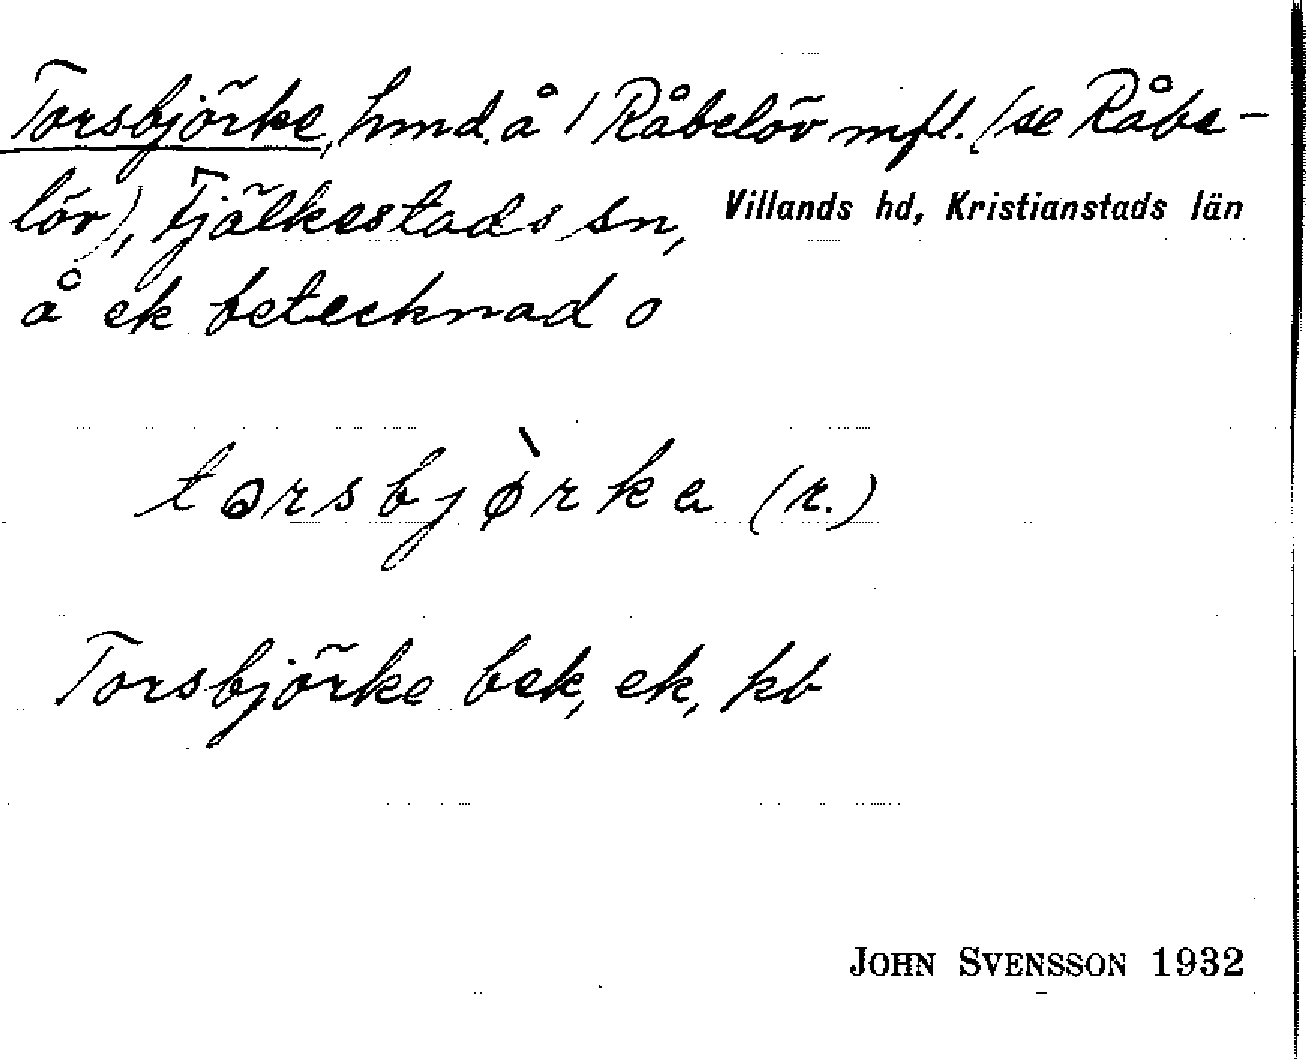 Torsbjörke, hmd. å 1 Råbelöv mfl. (se Råbe-
löv), Fjälkestads sn, Villands hd, Kristianstads län
å ek betecknad o
tɔrsbjø̀rka (r.)
Torsbjörke bek, ek, kb
JOHN SVENSSON 1932